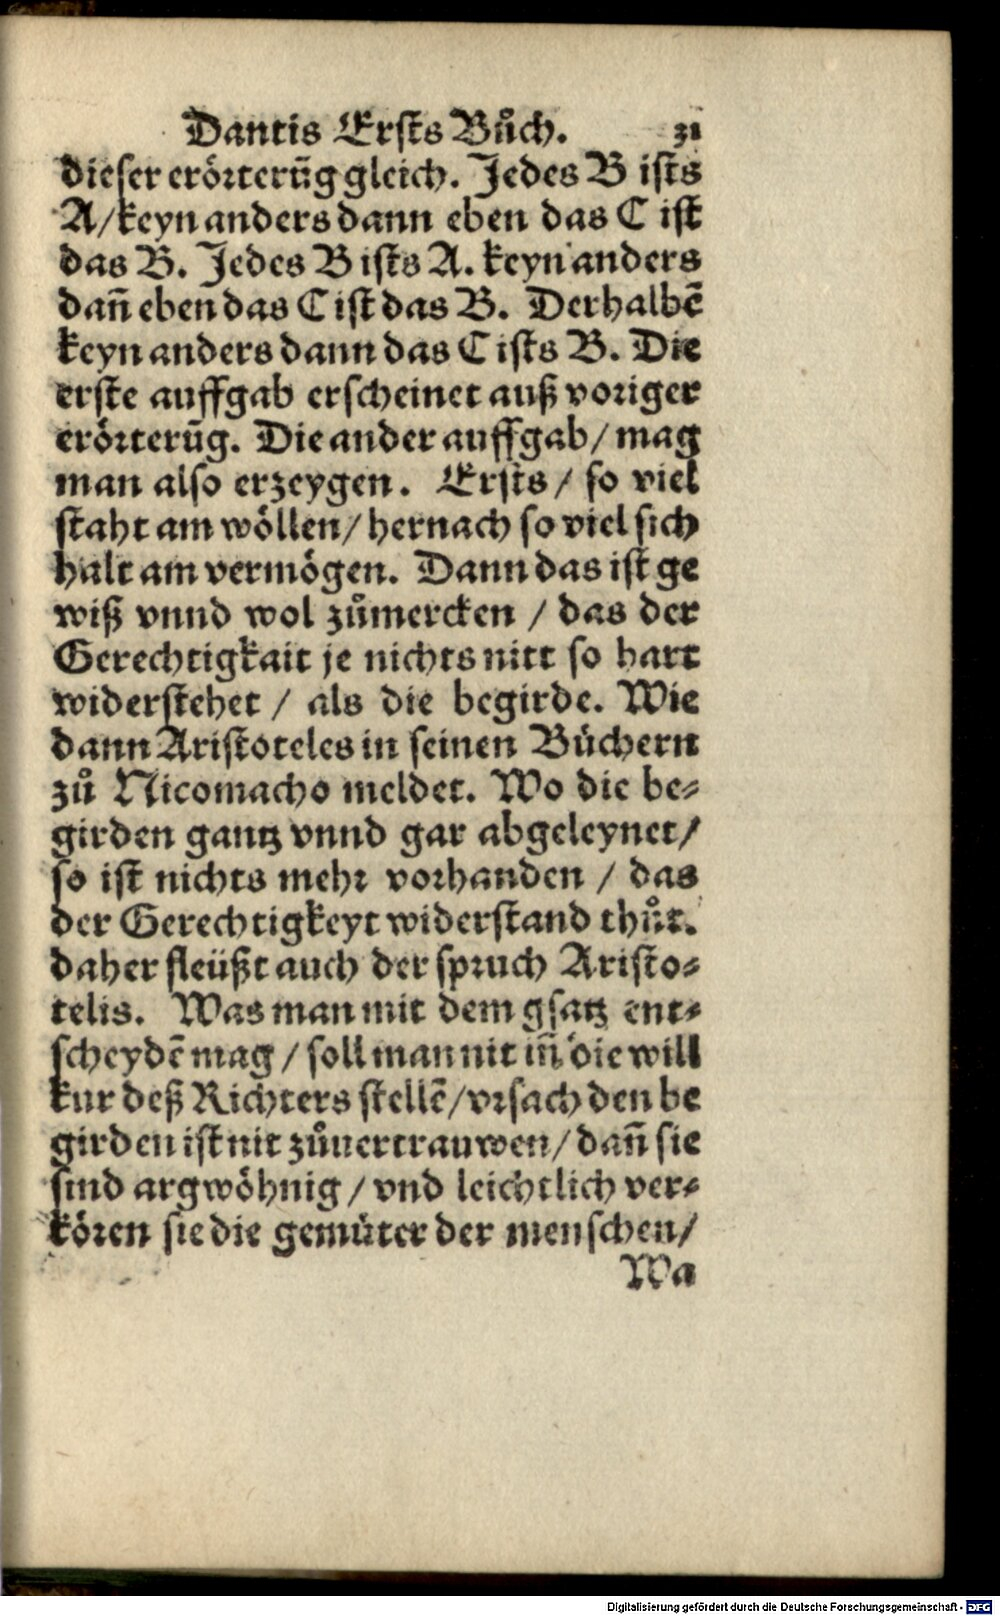 Dantis Ersts Bůch. 31
dieser erörterūg gleich. Jedes B ists
A/keyn anders dann eben das C ist
das B. Jedes B ists A. keyn anders
dañ eben das C ist das B. Derhalbē
keyn anders dann das C ists B. Die
erste auffgab erscheinet auß voriger
erörterūg. Die ander auffgab/ mag
man also erzeygen. Ersts/ so viel
staht am wöllen/ hernach so viel sich
halt am vermögen. Dann das ist ge
wiß vnnd wol zůmercken / das der
Gerechtigkait je nichts nitt so hart
widerstehet / als die begirde. Wie
dann Aristoteles in seinen Büchern
zů Nicomacho meldet. Wo die be⸗
girden gantz vnnd gar abgeleynet/
so ist nichts mehr vorhanden / das
der Gerechtigkeyt widerstand thůt.
daher fleüßt auch der spruch Aristo⸗
telis. Was man mit dem gsatz ent⸗
scheydē mag / soll man nit iñ die will
kur deß Richters stellē/ vrsach den be
girden ist nit zůuertrauwen/ dañ sie
sind argwöhnig / vnd leichtlich ver⸗
kören sie die gemüter der menschen/
Wa
Digitalisierung gefördert durch die Deutsche Forschungsgemeinschaft - DFG